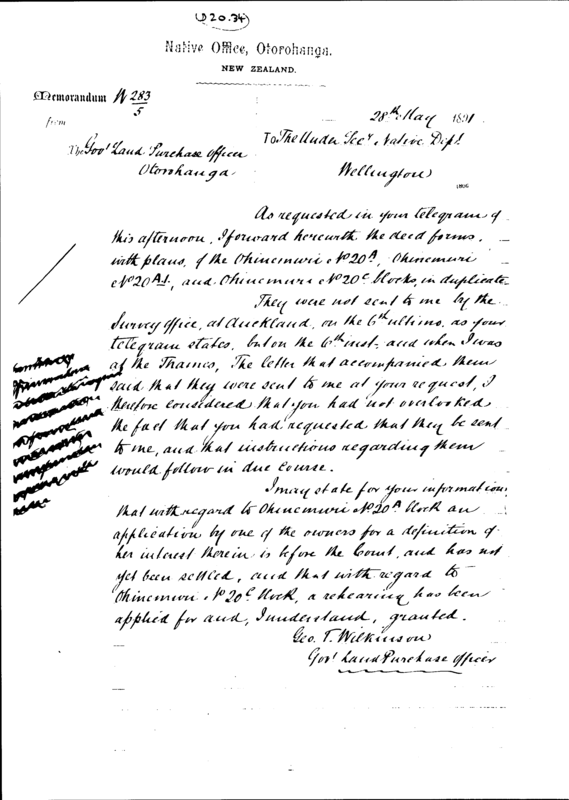 D20.34
Native Office, Otorohanga.
NEW ZEALAND.
Memorandum N 283/5
from
The Govt Land Purchase Officer
Otorohanga
28th May 1891
To The Under Secy Native Dept.
Wellington
As requested in your telegram of
this afternoon, I forward herewith the deed forms,
with plans, of the Ohinemuri No 20A, Ohinemuri
No 20A1, and Ohinemuri No 20C blocks, in duplicate.
They were not sent to me by the
Survey office, at Auckland, on the 6th ultimo, as your
telegram states, but on the 6th inst. and when I was
at the Thames, The letter that accompanied them
said that they were sent to me at your request, I
therefore considered that you had not overlooked
the fact that you had requested that they be sent
to me, and that instructions regarding them
would follow in due course.
I may state for your information
that with regard to Ohinemuri No 20A block an
application by one of the owners for a definition of
her interest therein is before the Court, and has not
yet been settled, and that with regard to
Ohinemuri No 20C block, a rehearing has been
applied for and, I understand, granted.
Geo. T. Wilkinson
Govt Land Purchase Officer